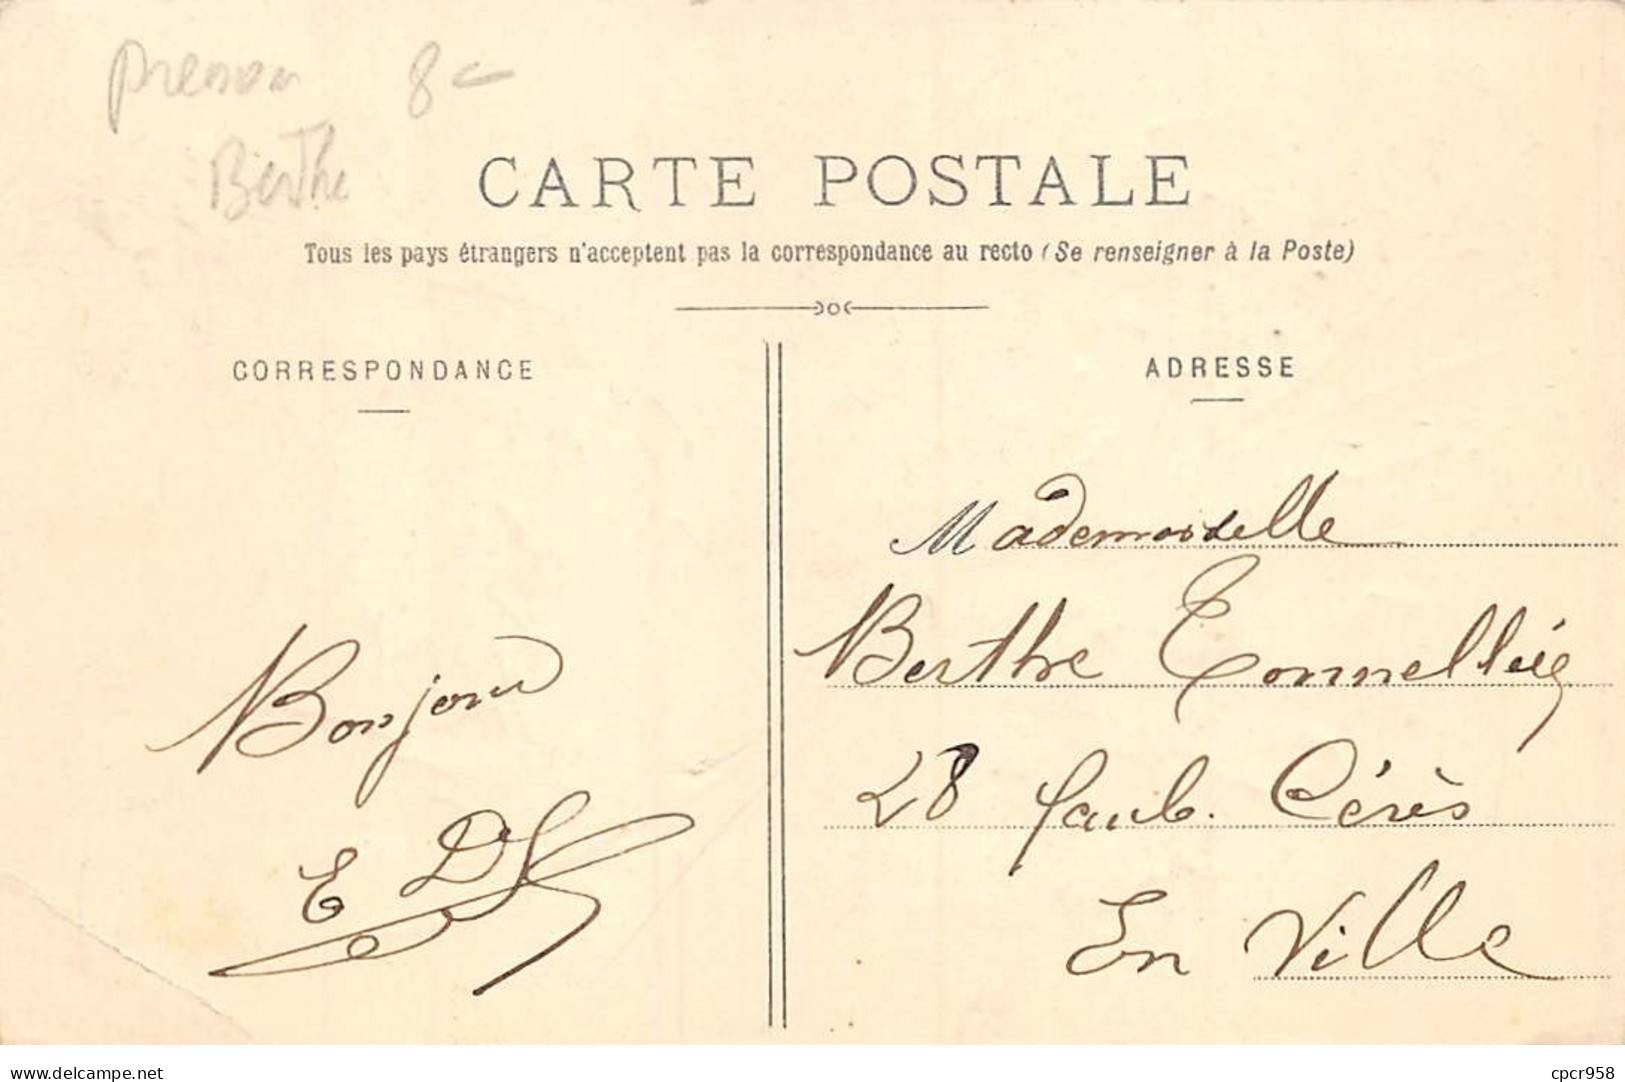 prenom 8
Berthe
CARTE POSTALE
Tous les pays étrangers n'acceptent pas la correspondance au recto (Se renseigner à la Poste)
CORRESPONDANCE
Bonjour
E D
ADRESSE
Mademoiselle
Berthe
28 faub. Cérès
En Ville
www.delcampe.net
cpcr958